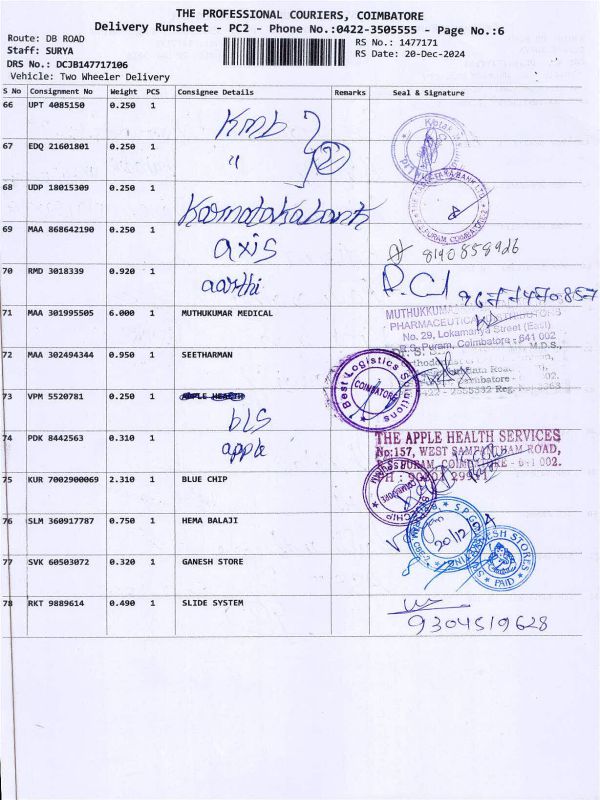 THE PROFESSIONAL COURIERS, COIMBATORE
Delivery Runsheet - PC2 - Phone No.:0422-3505555 - Page No.:6
Route: DB ROAD
RS No.: 1477171
Staff: SURYA
RS Date: 20-Dec-2024
DRS No.: DCJB147717106
Vehicle: Two Wheeler Delivery
S No Consignment No Weight PCS Consignee Details Remarks Seal & Signature
66 UPT 4085150 0.250 1 Kmb
67 EDQ 21601801 0.250 1 " 2
68 UDP 18015309 0.250 1 Karnatakabank
69 MAA 868642190 0.250 1 axis
70 RMD 3018339 0.920 1 aarthi
71 MAA 301995505 6.000 1 MUTHUKUMAR MEDICAL
MUTHUKKUMA
PHARMACEUTICAL DISTRIBUTORS
No. 29, Lokamanya Street (East)
R.S. Puram, Coimbatore - 641 002
72 MAA 302494344 0.950 1 SEETHARMAN
M.D.S.,
Best Logistics Solutions
COIMBATORE
73 VPM 5520781 0.250 1 APPLE HEALTH
bLS
74 PDK 8442563 0.310 1 apple
THE APPLE HEALTH SERVICES
No:157, WEST SAMPANTHAM ROAD,
R.S PURAM, COIMBATORE - 641 002.
75 KUR 7002900069 2.310 1 BLUE CHIP
76 SLM 360917787 0.750 1 HEMA BALAJI
20/12
77 SVK 60503072 0.320 1 GANESH STORE
GANESH STORES
PAID
78 RKT 9889614 0.490 1 SLIDE SYSTEM
9304519628